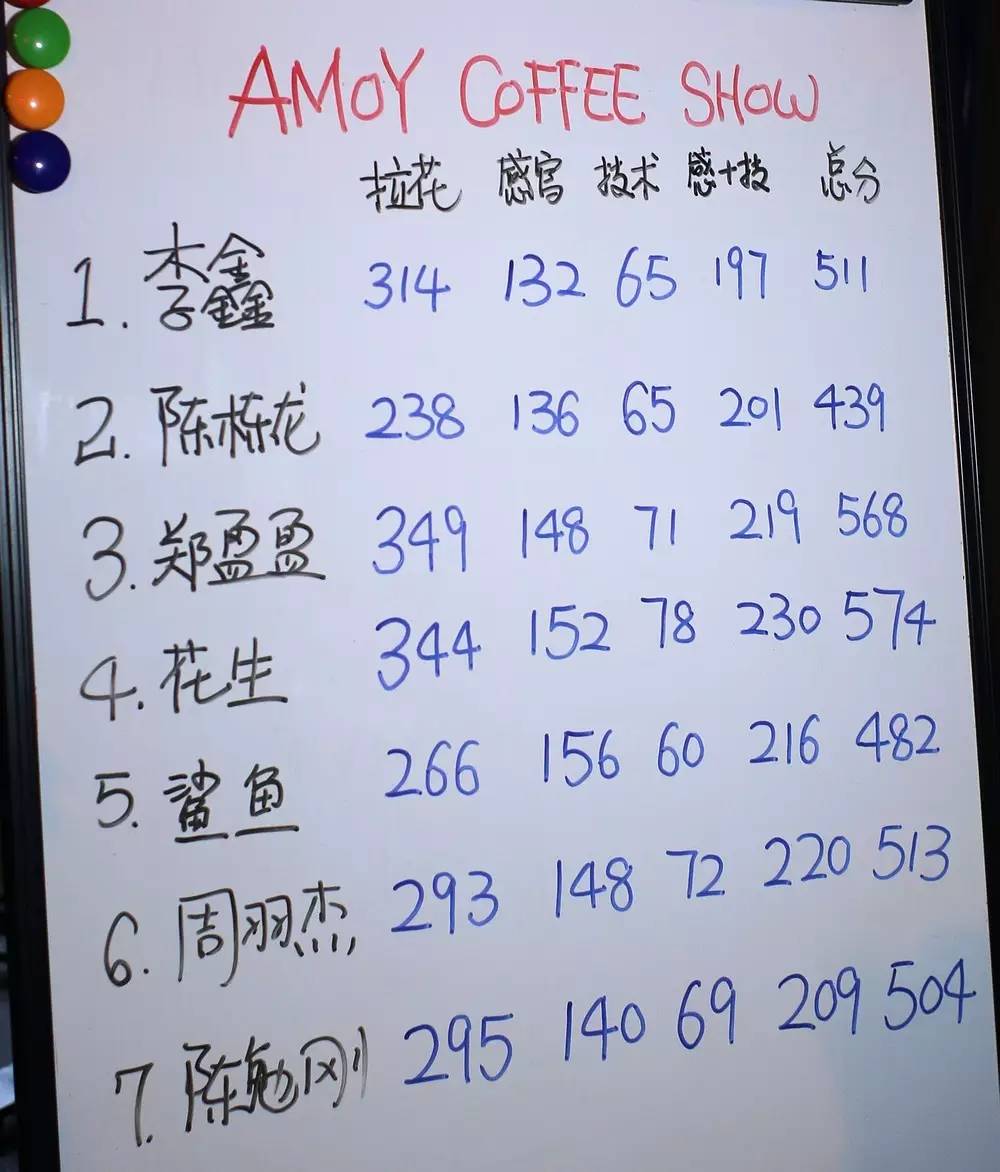 AMOY COFFEE SHOW
拉花 感官 技术 感+技 总分
1. 李鑫 314 132 65 197 511
2. 陈栋龙 238 136 65 201 439
3. 郑盈盈 349 148 71 219 568
4. 花生 344 152 78 230 574
5. 鲨鱼 266 156 60 216 482
6. 周羽杰 293 148 72 220 513
7. 陈勉刚 295 140 69 209 504